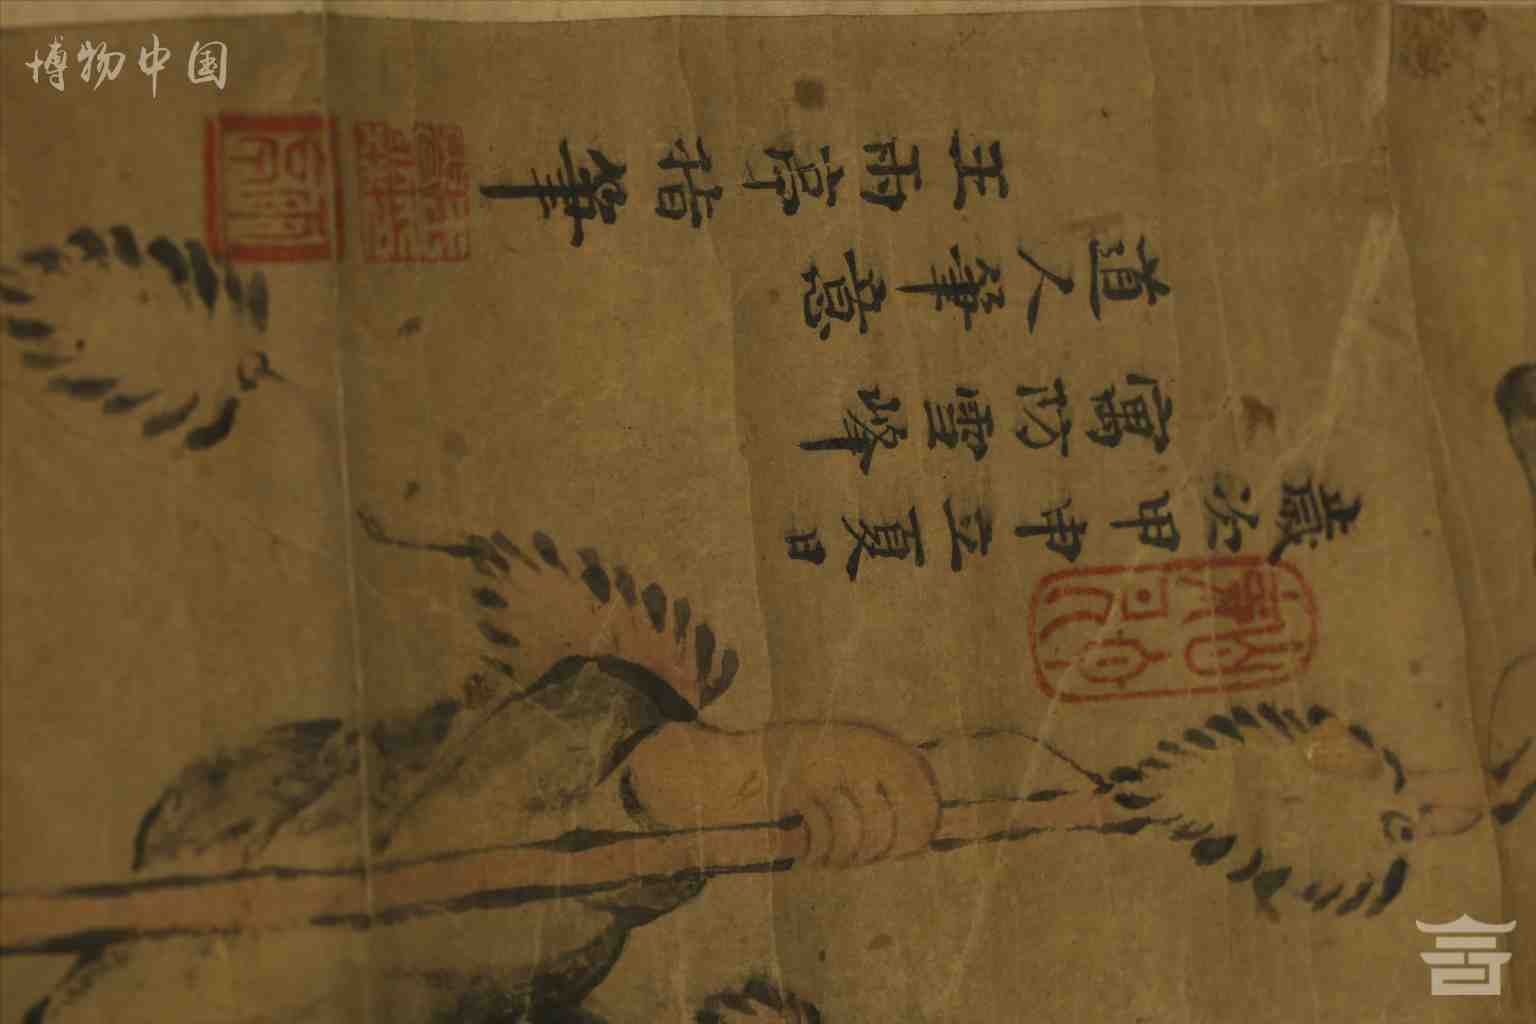 博物中国
歲次甲申立夏日
寓防雪峰
道人筆意
王雨亭指筆